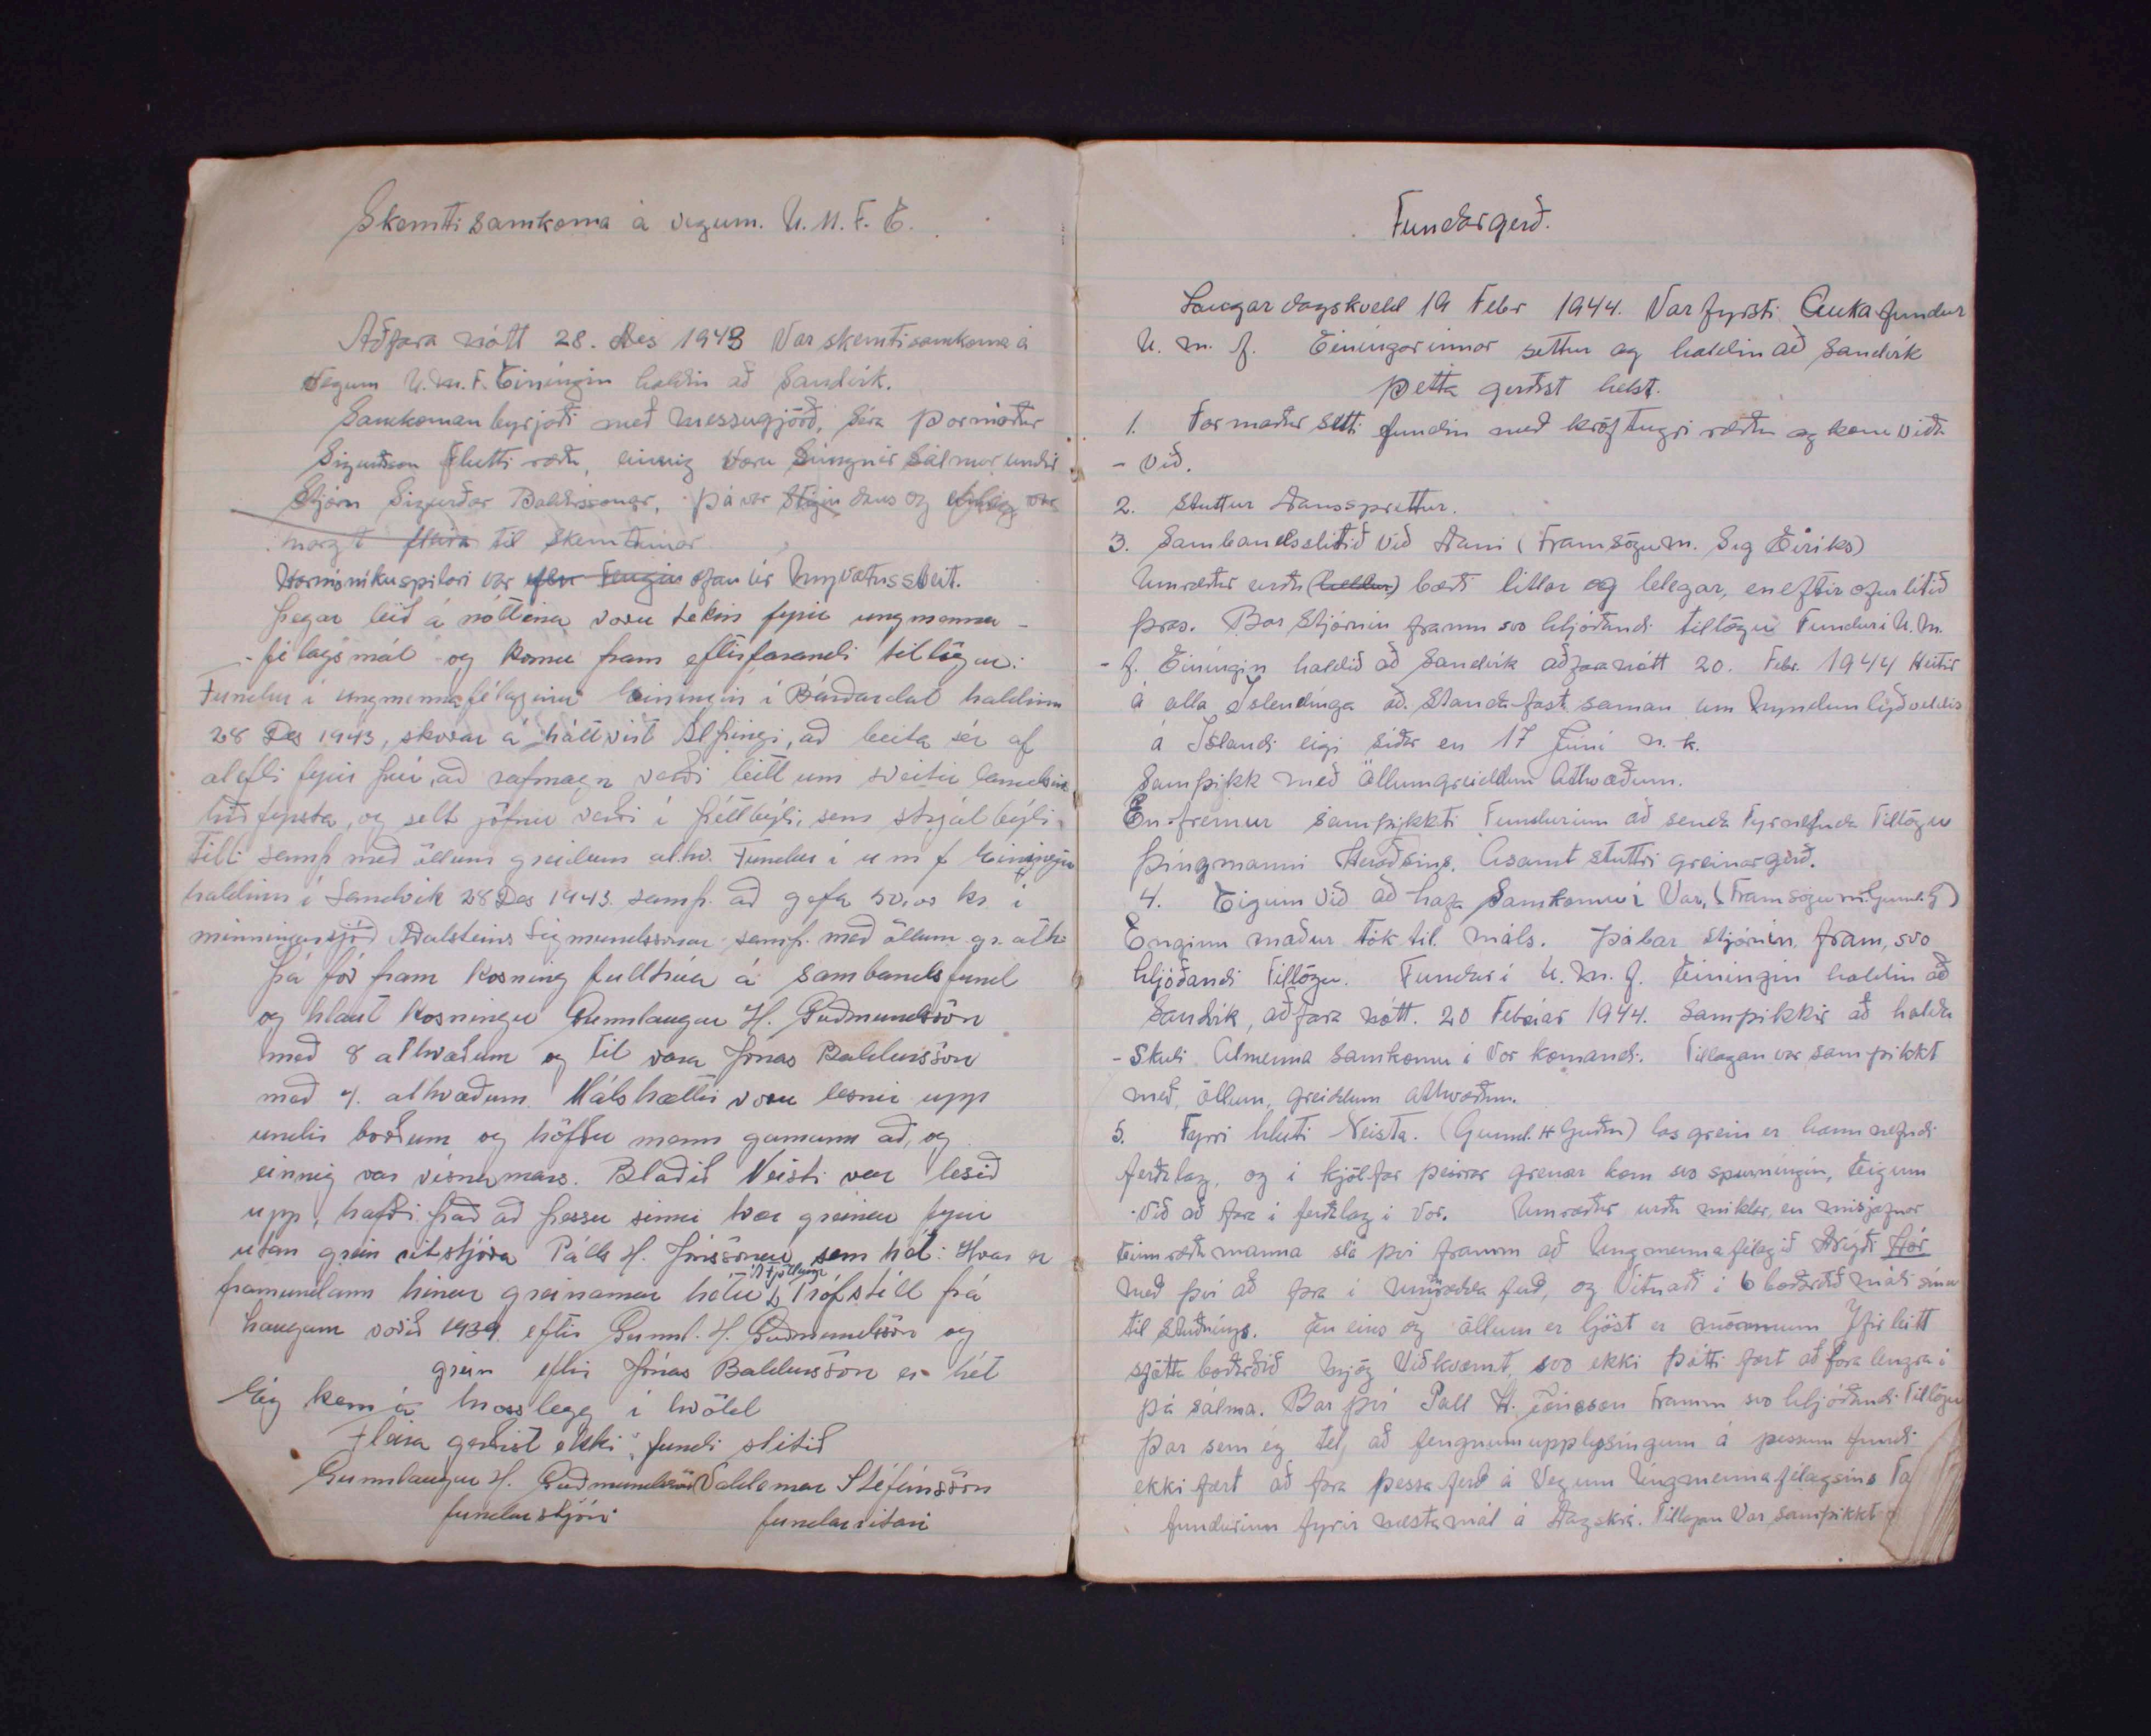 Skemtisamkoma á vegum. U. M. F. E.
Aðfara nótt 28. Des 1943 Var skemtisamkoma á
Vegum U.M.F. Einíngin haldin að Sandvík.
Samkoman byrjaði með messugjörð, Séra Þormóður
Sigurðsson flutti ræðu, einnig voru Sungnir Sálmar undir
Stjórn Sigurðar Baldurssonar, þá var Stigin dans og
margt fleira til Skemtunar
Harmónikuspilari var ofan úr Mývatnssveit.
Þegar leið á nóttina voru tekin fyrir ungmenna-
-félagsmál og komu fram eftirfarandi tillögur:
Fundur í ungmennafélaginu Einingin í Bárðardal haldinn
28 Des 1943, skorar á háttvirt Alþingi, að beita sér af
alefli fyrir því, að rafmagn verði leitt um sveitir landsins
hið fyrsta, og selt jöfnu verði í þéttbýli, sem strjálbýli.
Till. samþ með öllum greidum atkv. Fundur í u m f Einingin
haldinn í Sandvík 28 Des 1943. samþ. að gefa 50,00 kr. í
minningarsjóð Aðalsteins Sigmundssonar samþ. með öllum gr. atkv
Þá fór fram kosning fulltrúa á sambandsfund
og hlaut kosningu Gunnlaugur H. Guðmundsson
með 8 atkvæðum og til vara Jónas Baldursson
með 4. atkvæðum. Málshættir voru lesnir upp
undir borðum og höfðu menn gamann að, og
einnig var vísnamars. Blaðið Neisti var lesið
upp, hafði það að þessu sinni tvær greinar fyrir
utan grein ritstjóra Páls H. Jónssonar, sem hét: Hvar er
framundann hinar greinarnar hétu Prófstíll frá
Laugum vorið 1939. eftir Gunnl. H. Guðmundsson og
grein eftir Jónas Baldursson er hét
Eig kem á mosslegg í kvöld
Fleira gerðist ekki fundi slitið
Gunnlaugur H. Guðmundsson Valdemar Stefánsson
fundarstjóri fundarritari
Fundargerð.
Laugardagskveld 19 Febr 1944. Var fyrsti Aukafundur
U. m. f. Einíngarinnar settur og haldin að Sandvík
Þetta gerðist helst.
1. Formaður setti fundin með kröftugri ræðu og kom víða
- við.
2. Stuttur Danssprettur.
3. Sambandsslitið við Dani (Framsögum. Sig Eiriks)
Umræður urðu (heldur) bæði litlar og lélegar, en eftir ofurlítið
þras. Bar Stjórnin framm svo hljóðandi tillögu Fundur í U. M.
- f. Einíngin haldið að Sandvík aðfaranótt 20. Febr. 1944 Heitir
á alla Íslendínga að. Standa fast saman um myndun lýðveldis
á Íslandi eigi síðar en 17 Júní n. k.
Samþikk með öllumgreiddum Atkvæðum.
En-fremur samþikkti Fundurinn að senda Fyrnefnda Tillögu
þingmanni Héraðsins. Ásamt stuttri greinargerð.
4. Eigum við að hafa Samkomu í Vor, (Framsögum. Gunnl. G)
Enginn maður tók til máls. Þá bar stjórnin fram, svo
hljóðandi Tillögu. Fundur í U. M. f. Einingin haldin að
Sandvík, aðfara nótt. 20 Febrúar 1944. Samþikkir að halda
- Skuli Almenna samkomu í Vor komandi. Tillagan var samþikkt
með, öllum, greiddum atkvæðum.
5. Fyrri hluti Neista. (Gunnl. H Guðm) las grein er hann nefndi
ferðalag, og í kjölfar þeirrar grenar kom svo spurníngin, Eigum
- við að fara í ferðalag í Vor. Umræður urðu miklar, en misjafnar
Einn ræðumanna sló því framm að Ungmennafélagið Drýgði hór
með því að fara í umrædda ferð, og Vitnaði í 6 boðorðið máli sínu
til stuðníngs. En eins og öllum er ljóst er mönnum Yfir leitt
sjötta boðorðið mjög Viðkvæmt, svo ekki þótti fært að fara lengra í
þá sálma. Bar því Páll H. Jónsson Framm svo hljóðandi Tillögu
Þar sem ég tel, að fengnumupplysíngum á þessum fundi
ekki fært að fara þessa ferð á Vegum Ungmennafélagsins Ta
fundurinn fyrir næsta mál á Dagskrá. Tillagan Var samþikkt